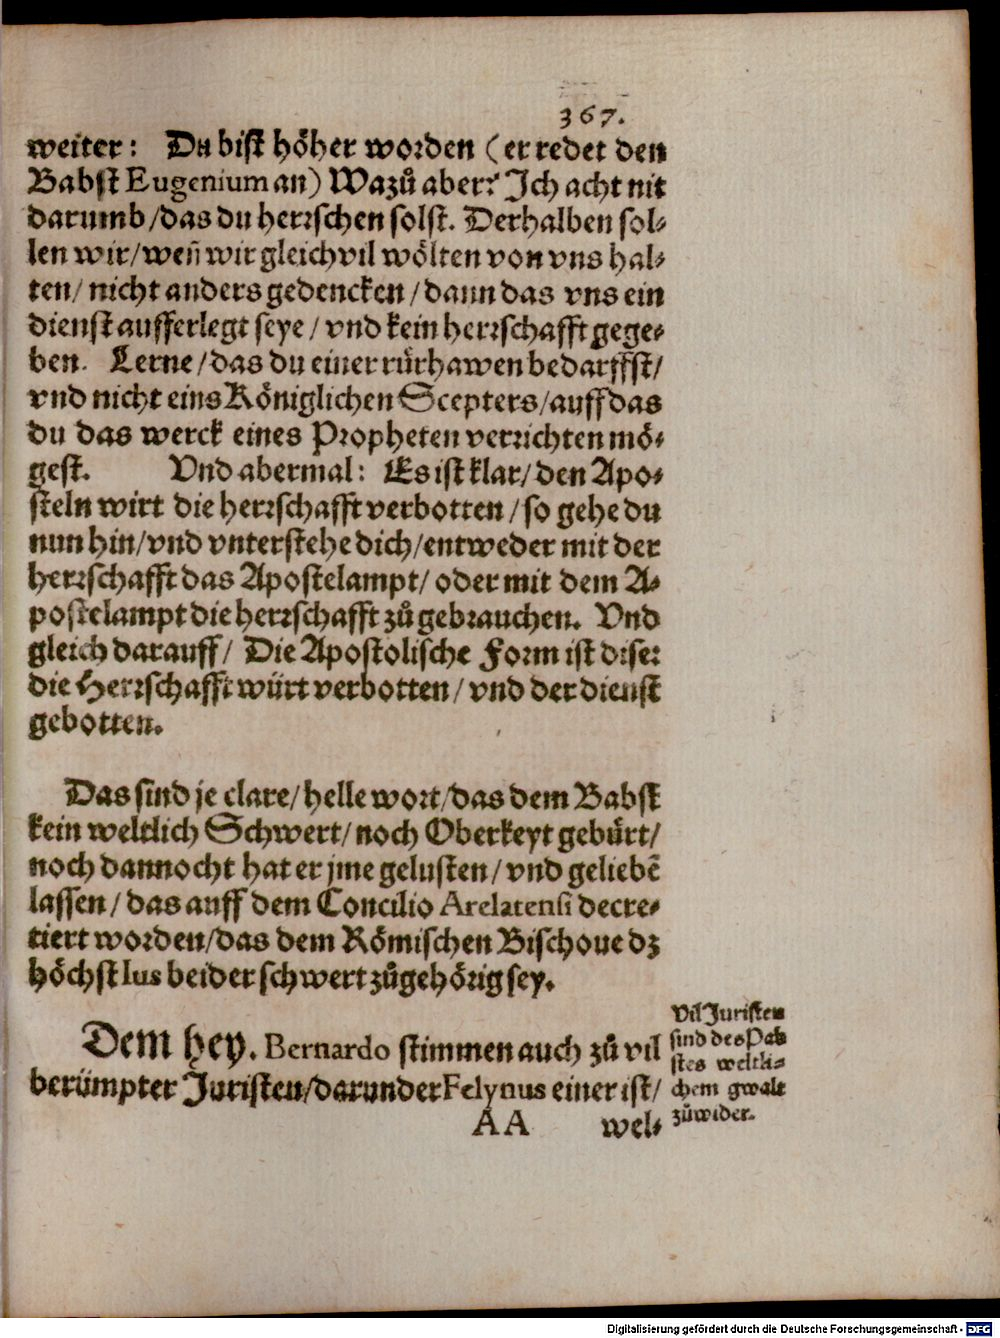 367.
weiter: Du bist höher worden (er redet den
Babst Eugenium an) Wazů aber? Ich acht nit
darumb/das du herrschen solst. Derhalben sol-
len wir/weñ wir gleich vil wölten von vns hal-
ten/ nicht anders gedencken/dann das vns ein
dienst aufferlegt seye/ vnd kein herrschafft gege-
ben. Lerne/das du einer rürhawen bedarffst/
vnd nicht eins Königlichen Scepters/auff das
du das werck eines Propheten verrichten mö-
gest. Vnd abermal: Es ist klar/den Apo-
steln wirt die herrschafft verbotten/so gehe du
nun hin/vnd vnterstehe dich/entweder mit der
herrschafft das Apostelampt/ oder mit dem A-
postelampt die herrschafft zů gebrauchen. Vnd
gleich darauff/ Die Apostolische Form ist diser
die Herrschafft würt verbotten/ vnd der dienst
gebotten.
Das sind je clare/helle wort/das dem Babst
kein weltlich Schwert/noch Oberkeyt gebürt/
noch dannocht hat er jme gelusten/vnd geliebē
lassen/das auff dem Concilio Arelatensi decre-
tiert worden/das dem Römischen Bischoue dz
höchst Ius beider schwert zůgehörig sey.
Dem hey. Bernardo stimmen auch zů vil
berümpter Juristen/darunder Felynus einer ist/
Vil Juristen
sind des Pab
stes weltli-
chem gwalt
zůwider.
AA wel-
Digitalisierung gefördert durch die Deutsche Forschungsgemeinschaft - DFG